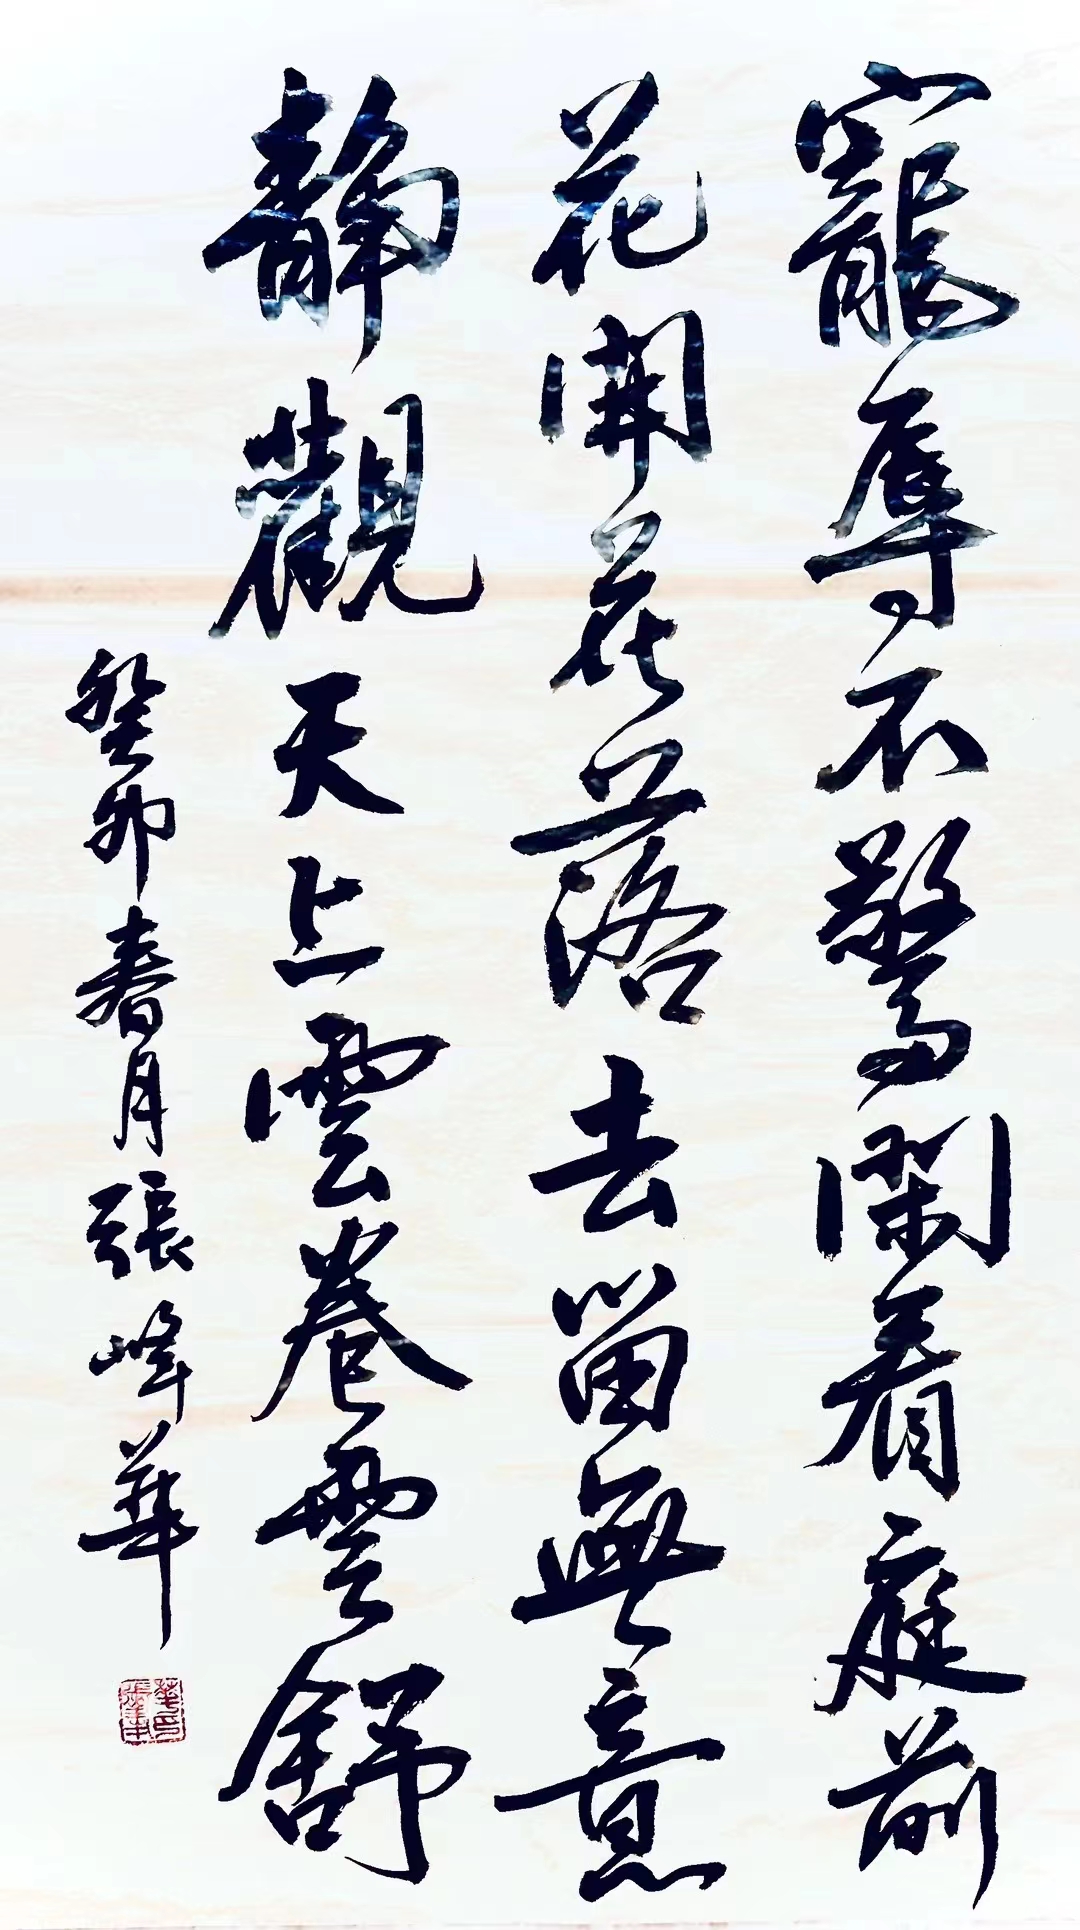 寵辱不驚閑看庭前
花開花落去留無意
靜觀天上雲卷雲舒
癸卯春月張峰華